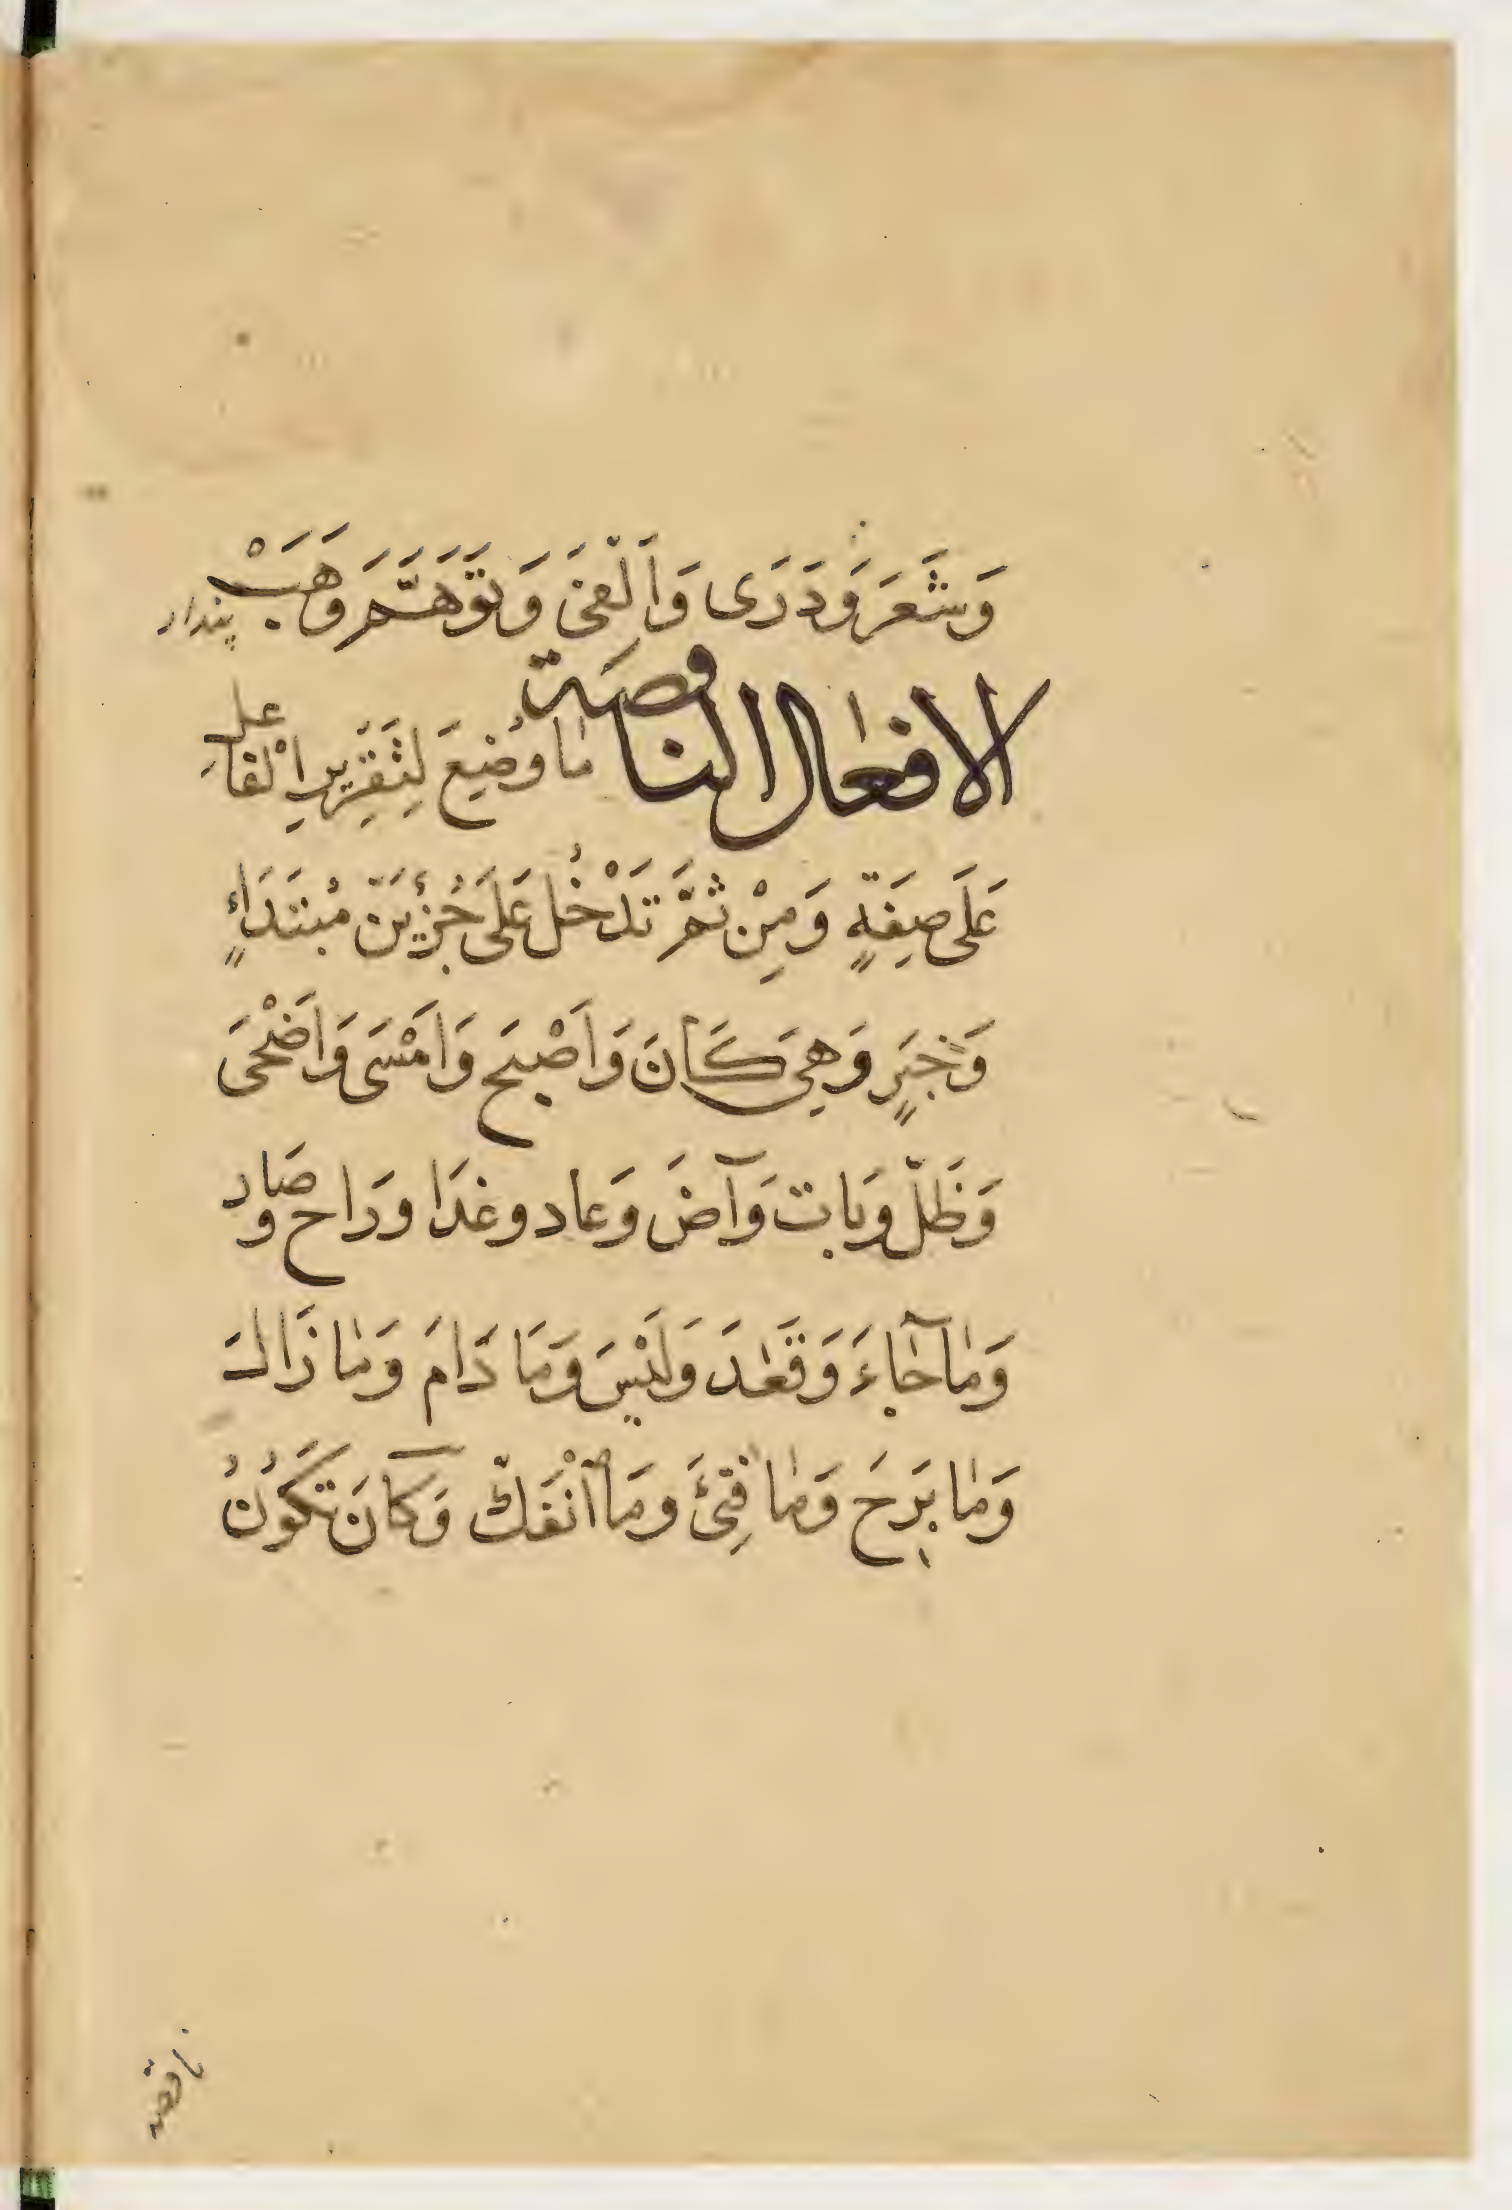 وَشَعَرَ وَدَرَى وَاَلْفَىَ وَتَوَهَّمَ وَهَبْ پندار
الافعال الناقصة مٰا وُضِعَ لِتَقْرِيرِ اْلفٰاعل
عَلَى صِفَةٍ وَمِنْ ثَمَّ تَدْخُلُ عَلَى جُزْئَيْنِ مُبْتَدَاءٍ
وَخَبَرٍ وَهِيَ كَانَ وَاَصْبَح وَاَمْسَى وَاَضْحَى
وَظَلّ وَبَات وَآضَ وَعاد وغَدَا وَرَاح وصَار
وَمٰا جٰآءَ وَقَعٰدَ وَلَيْسَ وَمَا دَامَ وَمٰا زَالَ
وَمٰا بَرِحَ وَمٰا فَتِئَ وَمَا اْنْفَكّ وَكَانَ تَكُونُ
ناقصه